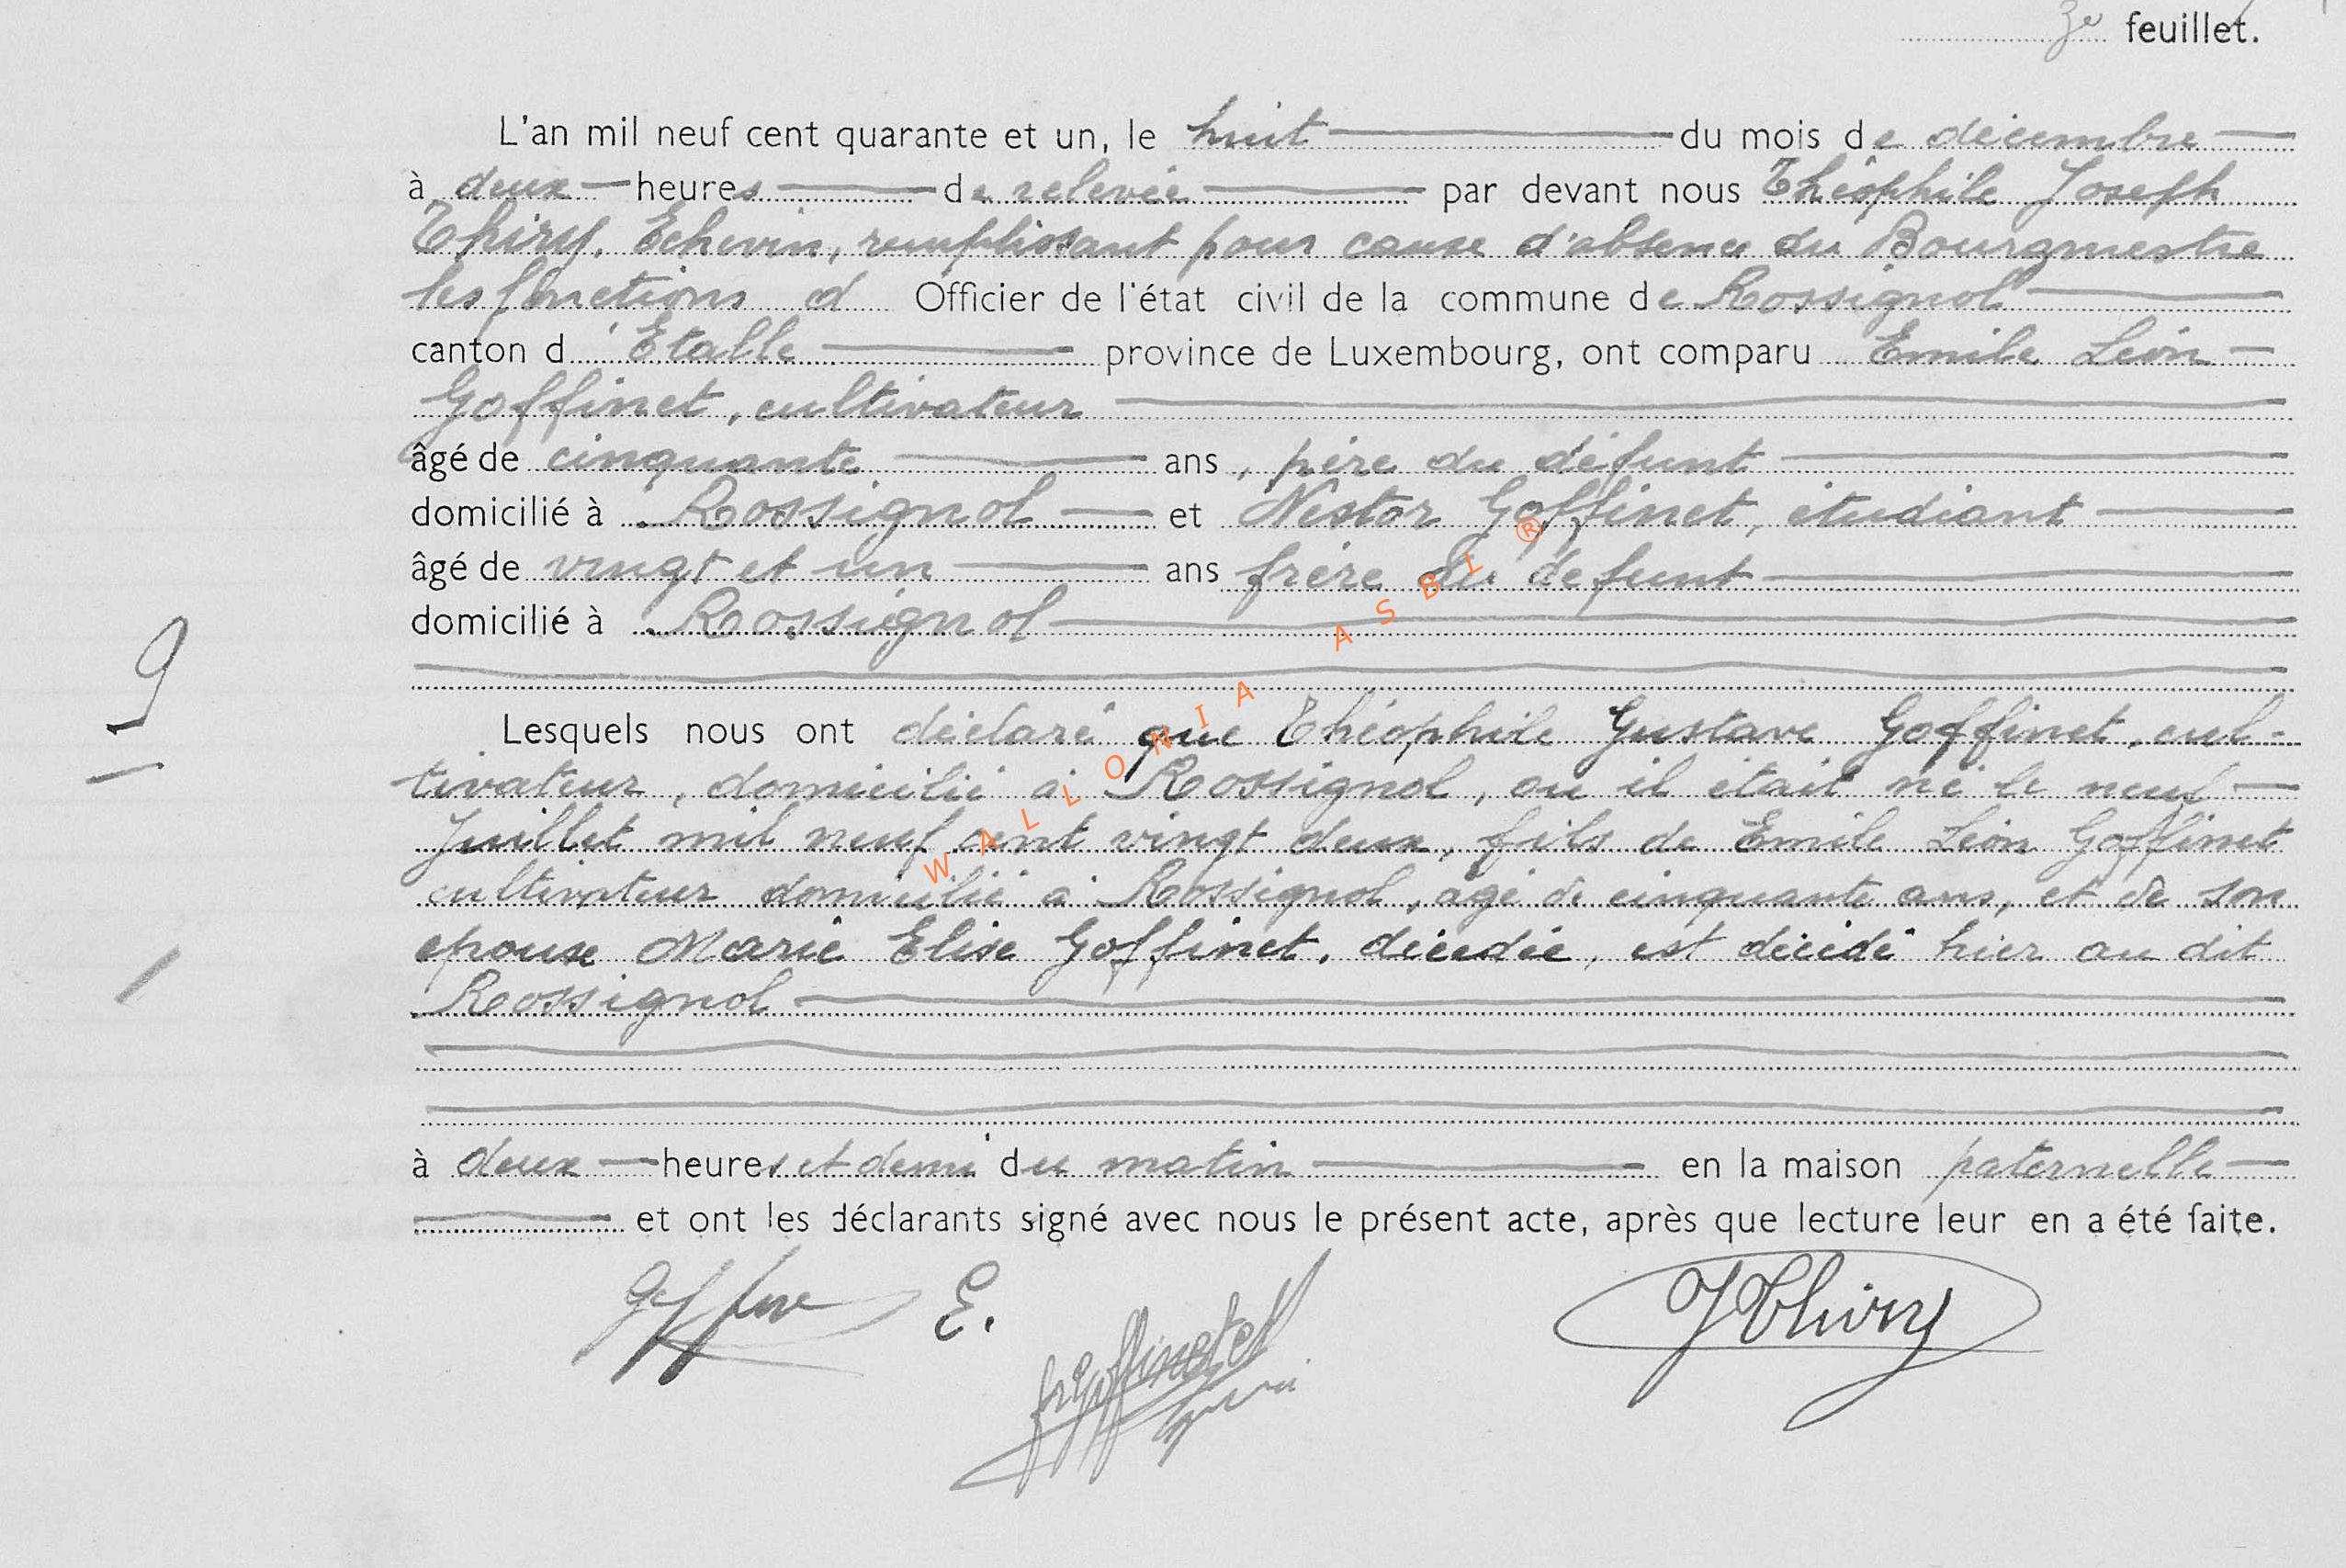 3e feuillet.
L'an mil neuf cent quarante et un, le huit du mois de décembre
à deux heures de relevée par devant nous Théophile Joseph
Thiry, Echevin, remplissant pour cause d'absence du Bourgmestre
les fonctions d Officier de l'état civil de la commune de Rossignol
canton d'Etalle province de Luxembourg, ont comparu Emile Léon
Goffinet, cultivateur
âgé de cinquante ans, père du défunt
domicilié à Rossignol et Nestor Goffinet, étudiant
âgé de vingt et un ans frère du défunt
domicilié à Rossignol
9
Lesquels nous ont déclaré que Théophile Gustave Goffinet, cul-
tivateur, domicilié à Rossignol, ou il était né le neuf
Juillet mil neuf cent vingt deux, fils de Emile Léon Goffinet
cultivateur domicilié à Rossignol, agé de cinquante ans, et de son
epouse Marie Elise Goffinet, décédée, est décédé hier au dit
Rossignol
à deux heures et demi du matin en la maison paternelle
et ont les déclarants signé avec nous le présent acte, après que lecture leur en a été faite.
E.
JThiry
WALLONIA ASBI ®